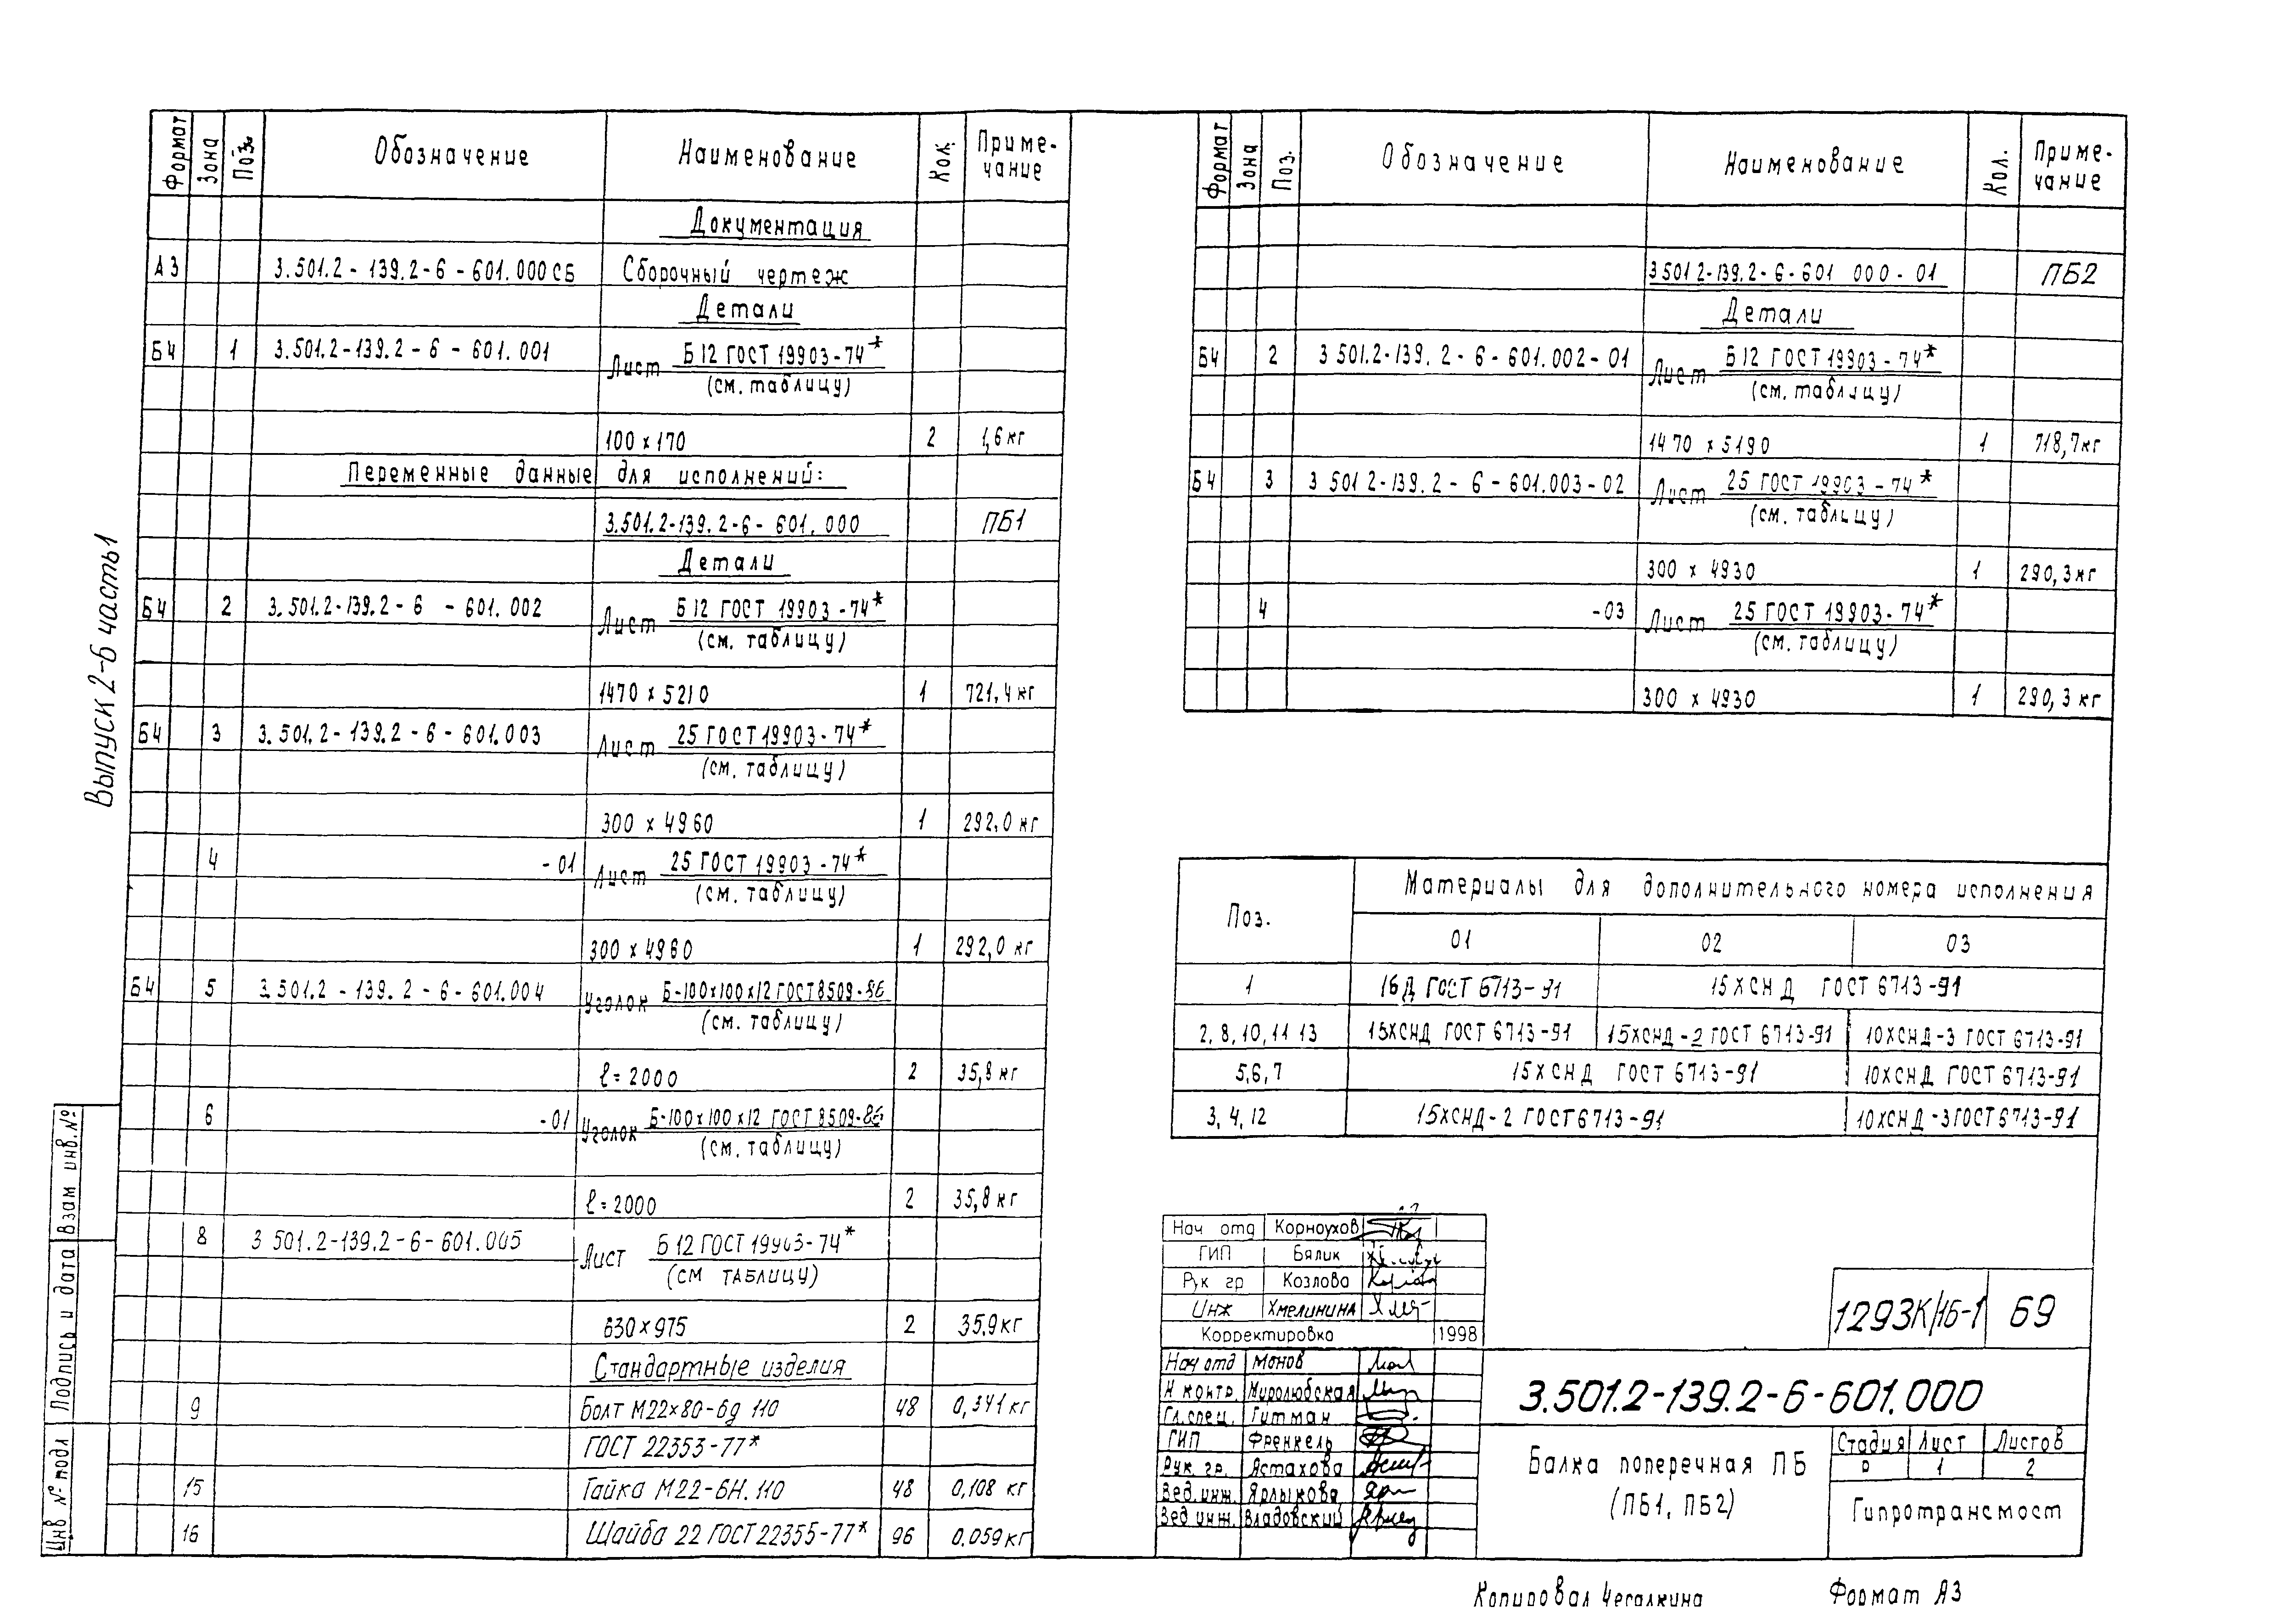 Выпуск 2-6 часть 1
Формат Зона Поз. Обозначение Наименование Кол. Приме-
чание
Документация
А3 3.501.2-139.2-6-601.000СБ Сборочный чертеж
Детали
Б4 1 3.501.2-139.2-6-601.001 Лист Б12 ГОСТ 19903-74*
(см. таблицу)
100 x 170 2 1,6 кг
Переменные данные для исполнений:
3.501.2-139.2-6-601.000 ПБ1
Детали
Б4 2 3.501.2-139.2-6-601.002 Лист Б12 ГОСТ 19903-74*
(см. таблицу)
1470 x 5210 1 721,4 кг
Б4 3 3.501.2-139.2-6-601.003 Лист 25 ГОСТ 19903-74*
(см. таблицу)
300 x 4960 1 292,0 кг
4 -01 Лист 25 ГОСТ 19903-74*
(см. таблицу)
300 x 4960 1 292,0 кг
Б4 5 3.501.2-139.2-6-601.004 Уголок Б-100x100x12 ГОСТ 8509-86
(см. таблицу)
ℓ=2000 2 35,8 кг
6 -01 Уголок Б-100x100x12 ГОСТ 8509-86
(см. таблицу)
ℓ=2000 2 35,8 кг
8 3 501.2-139.2-6-601.005 Лист Б12 ГОСТ 19903-74*
(см ТАБЛИЦУ)
630 x 975 2 35,9 кг
Стандартные изделия
9 Болт М22x80-6g 110 48 0,341 кг
ГОСТ 22353-77*
15 Гайка М22-6Н.110 48 0,108 кг
16 Шайба 22 ГОСТ 22355-77* 96 0.059 кг
Взам инв.№
Подпись и дата
Инв № подл
Формат Зона Поз. Обозначение Наименование Кол. Приме-
чание
3.501 2-139.2-6-601 000-01 ПБ2
Детали
Б4 2 3 501.2-139.2-6-601.002-01 Лист Б12 ГОСТ 19903-74*
(см. таблицу)
1470 x 5190 1 718,7 кг
Б4 3 3 501 2-139.2-6-601.003-02 Лист 25 ГОСТ 19903-74*
(см. таблицу)
300 x 4930 1 290,3 кг
4 -03 Лист 25 ГОСТ 19903-74*
(см. таблицу)
300 x 4930 1 290,3 кг
Поз. Материалы для дополнительного номера исполнения
01 02 03
1 16Д ГОСТ 6713-91 15ХСНД ГОСТ 6713-91
2, 8, 10, 11 13 15ХСНД ГОСТ 6713-91 15ХСНД-2 ГОСТ 6713-91 10ХСНД-3 ГОСТ 6713-91
5,6,7 15ХСНД ГОСТ 6713-91 10ХСНД ГОСТ 6713-91
3, 4, 12 15ХСНД-2 ГОСТ 6713-91 10ХСНД-3 ГОСТ 6713-91
Нач отд Корноухов
ГИП Бялик
Рук гр Козлова
Инж Хмелинина
Корректировка 1998
Нач отд Монов
Н контр. Миролюбская
Гл.спец. Гитман
ГИП Френкель
Рук. гр. Астахова
Вед.инж. Ярлыкова
Вед инж. Владовский
1293К/1б-1 69
3.501.2-139.2-6-601.000
Балка поперечная ПБ
(ПБ1, ПБ2)
Стадия Лист Листов
Р 1 2
Гипротрансмост
Копировал Чегалкина Формат А3